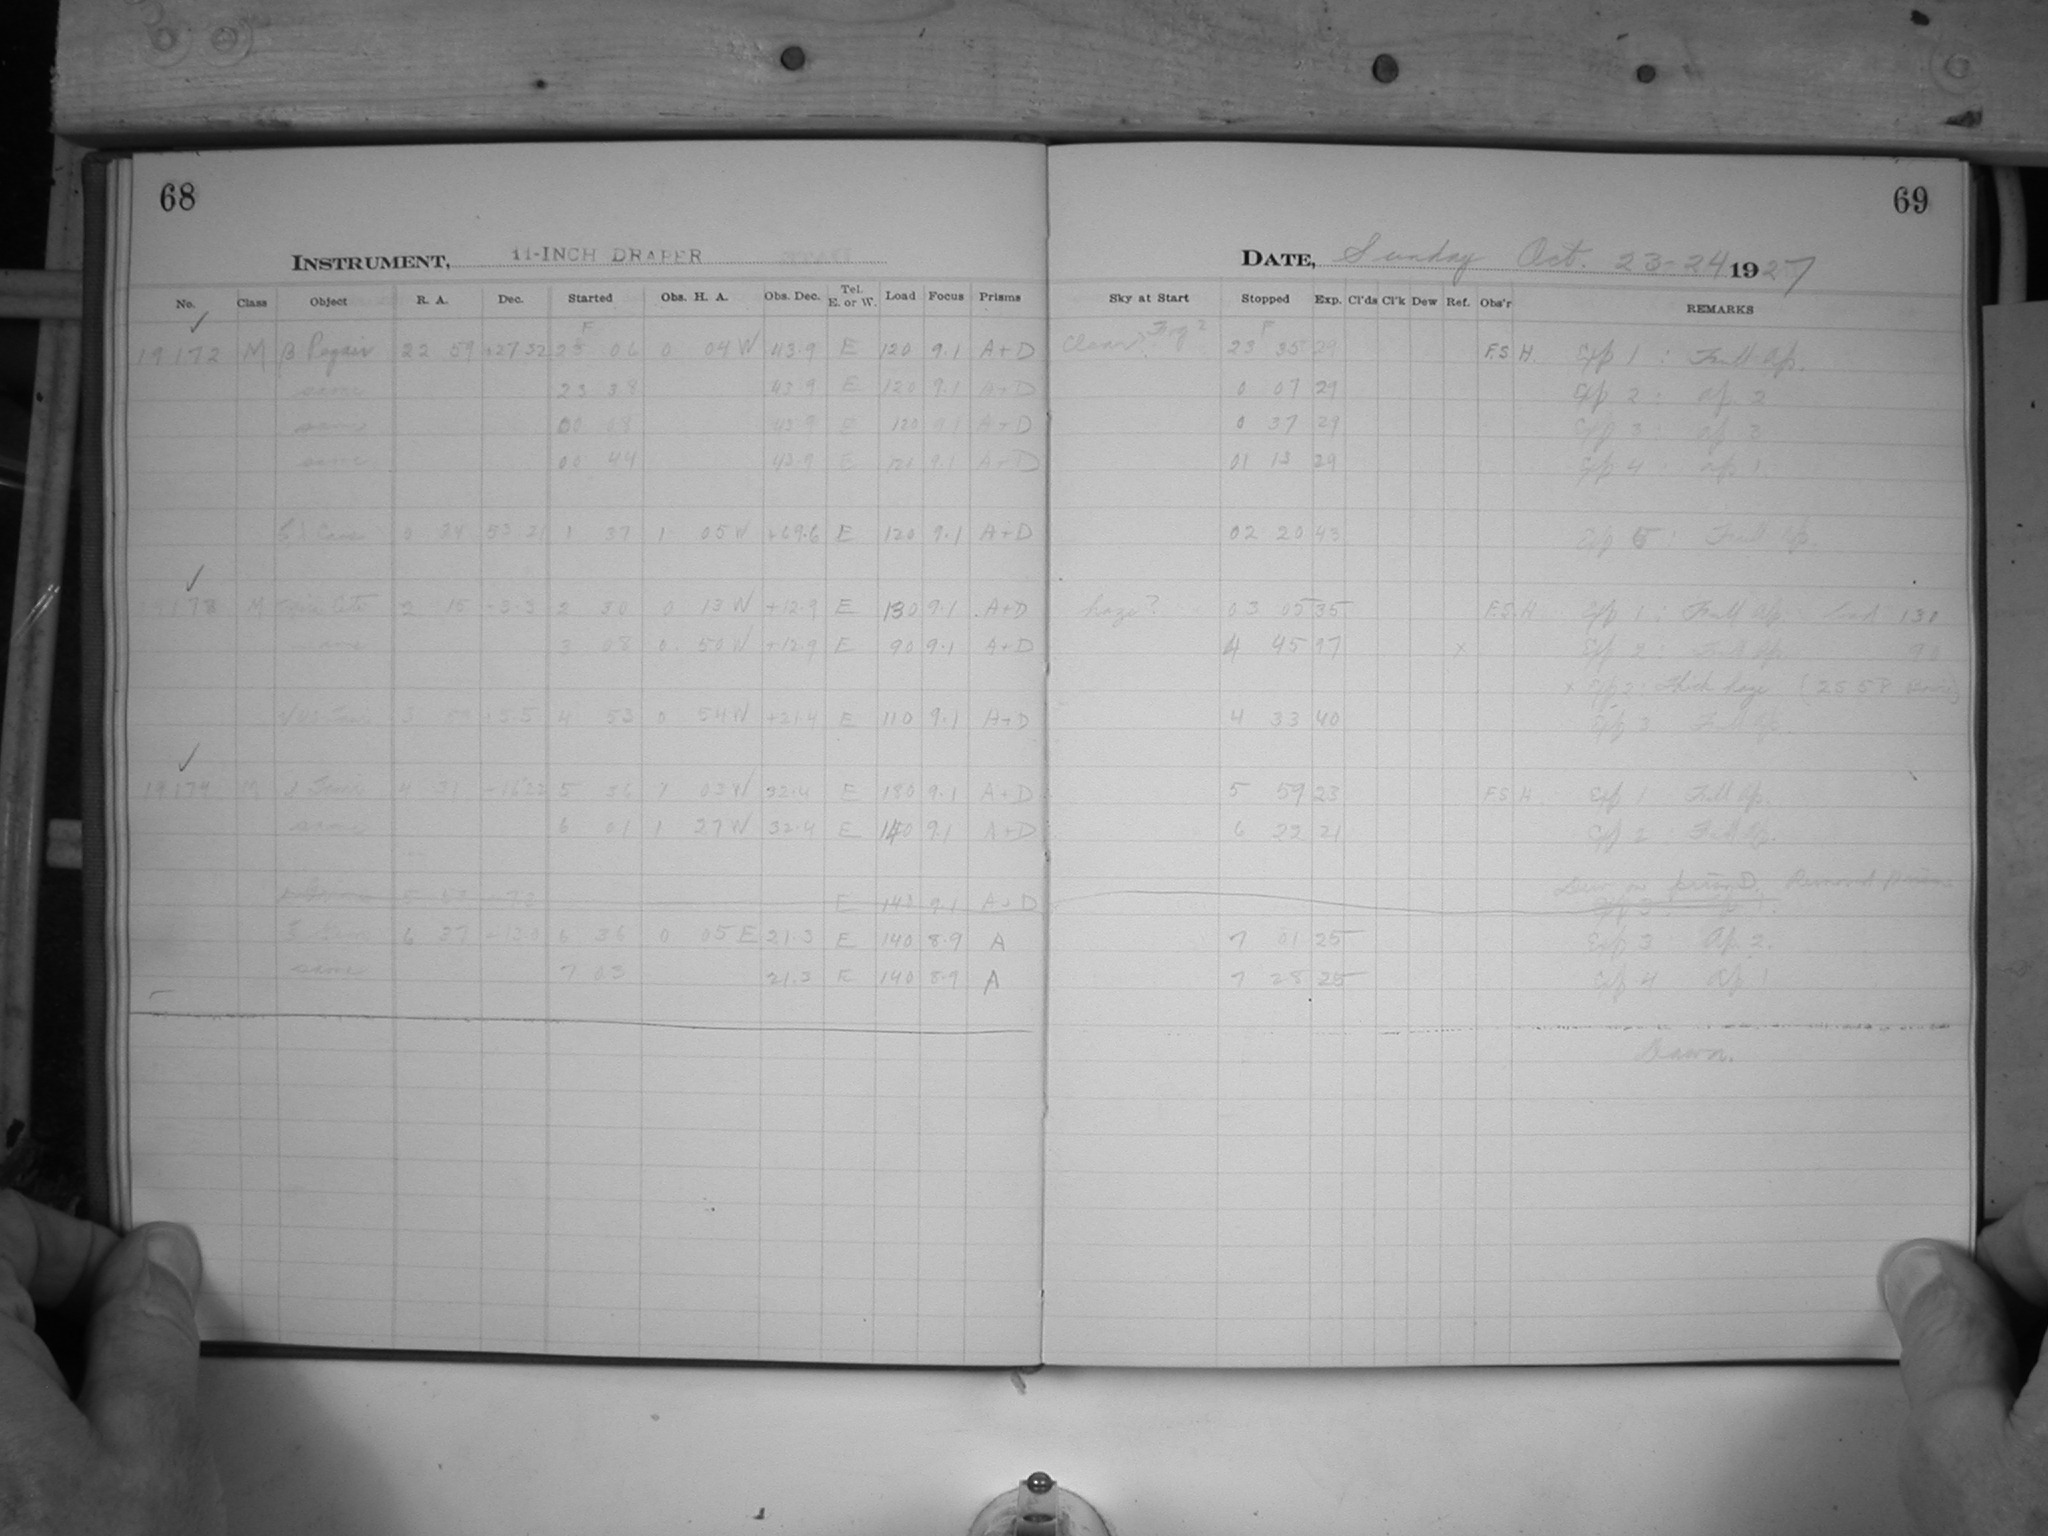 68
INSTRUMENT, 11-INCH DRAPER
No. Class Object R. A. Dec. Started Obs. H. A. Obs. Dec. Tel. E. or W. Load Focus Prisms
19172 M β Pegasi 22 59 +27 32 23 06 0 04 W 43.9 E 120 9.1 A+D
same 23 38 43.9 E 120 9.1 A+D
same 00 08 43.9 E 120 9.1 A+D
same 00 44 43.9 E 120 9.1 A+D
1 37 1 05 W +69.6 E 120 9.1 A+D
M 2 15 2 30 0 13 W +12.9 E 130 9.1 A+D
same 3 08 0 50 W +12.9 E 90 9.1 A+D
4 53 0 54 W +21.4 E 110 9.1 A+D
19174 M 4 31 5 36 03 W 32.4 E 180 9.1 A+D
same 6 01 1 27 W 32.4 E 140 9.1 A+D
E 140 9.1 A+D
6 37 6 36 0 05 E 21.3 E 140 8.9 A
same 7 03 21.3 E 140 8.9 A
69
DATE, Sunday Oct. 23-24 1927
Sky at Start Stopped Exp. Cl'ds Cl'k Dew Ref. Obs'r REMARKS
Clear? Fog? 23 35 29 F.S.H. Exp 1 : Full Ap.
0 07 29 Exp 2 : Ap. 2
0 37 29 Exp 3 : Ap. 3
01 13 29 Exp 4 : Ap. 1
02 20 43 Exp 5 : Full Ap.
haze? 03 05 35 F.S.H. Exp 1 : Full Ap. load 130
4 45 97 x Exp 2 : Full Ap. 90
x Exp 2 : Thick haze
4 33 40 Exp 3 Full Ap.
5 59 23 F.S.H. Exp 1 Full Ap.
6 22 21 Exp 2 : Full Ap.
Dew on prism D. Removed prism
7 01 25 Exp 3 Ap. 2.
7 28 25 Exp 4 Ap. 1
Dawn.